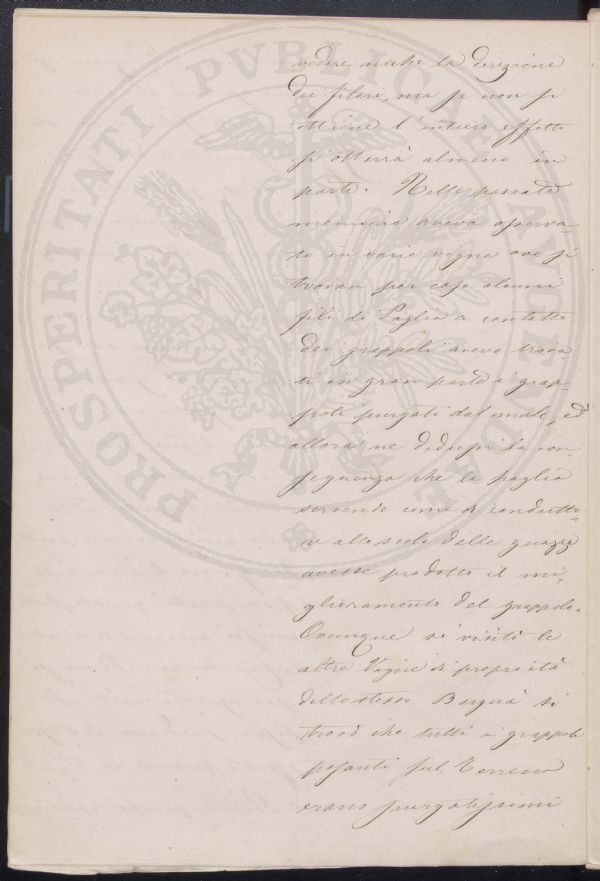 vedere anche la direzione
dei filari, ma se non si
ottiene l'intiero effetto
si otterrà almeno in
parte. Nelle passate
memorie aveva osserva-
to in varie vigne ove si
trovan per caso alcuni
fili di Paglia a contatto
dei grappoli avevo trova-
ti in gran parte i grap-
poli purgati dal male, ed
allora ne dedussi la con
seguenza che la paglia
servendo come di condutto-
re allo scolo delle guazze
avesse prodotto il mi-
glioramento del grappolo.
Ovunque si visitò le
altre Vigne di proprietà
dello stesso Bargua si
trovò che tutti i grappoli
posanti sul Terreno
erano purgatissimi
PROSPERITATI PVBLICAE AVGENDAE